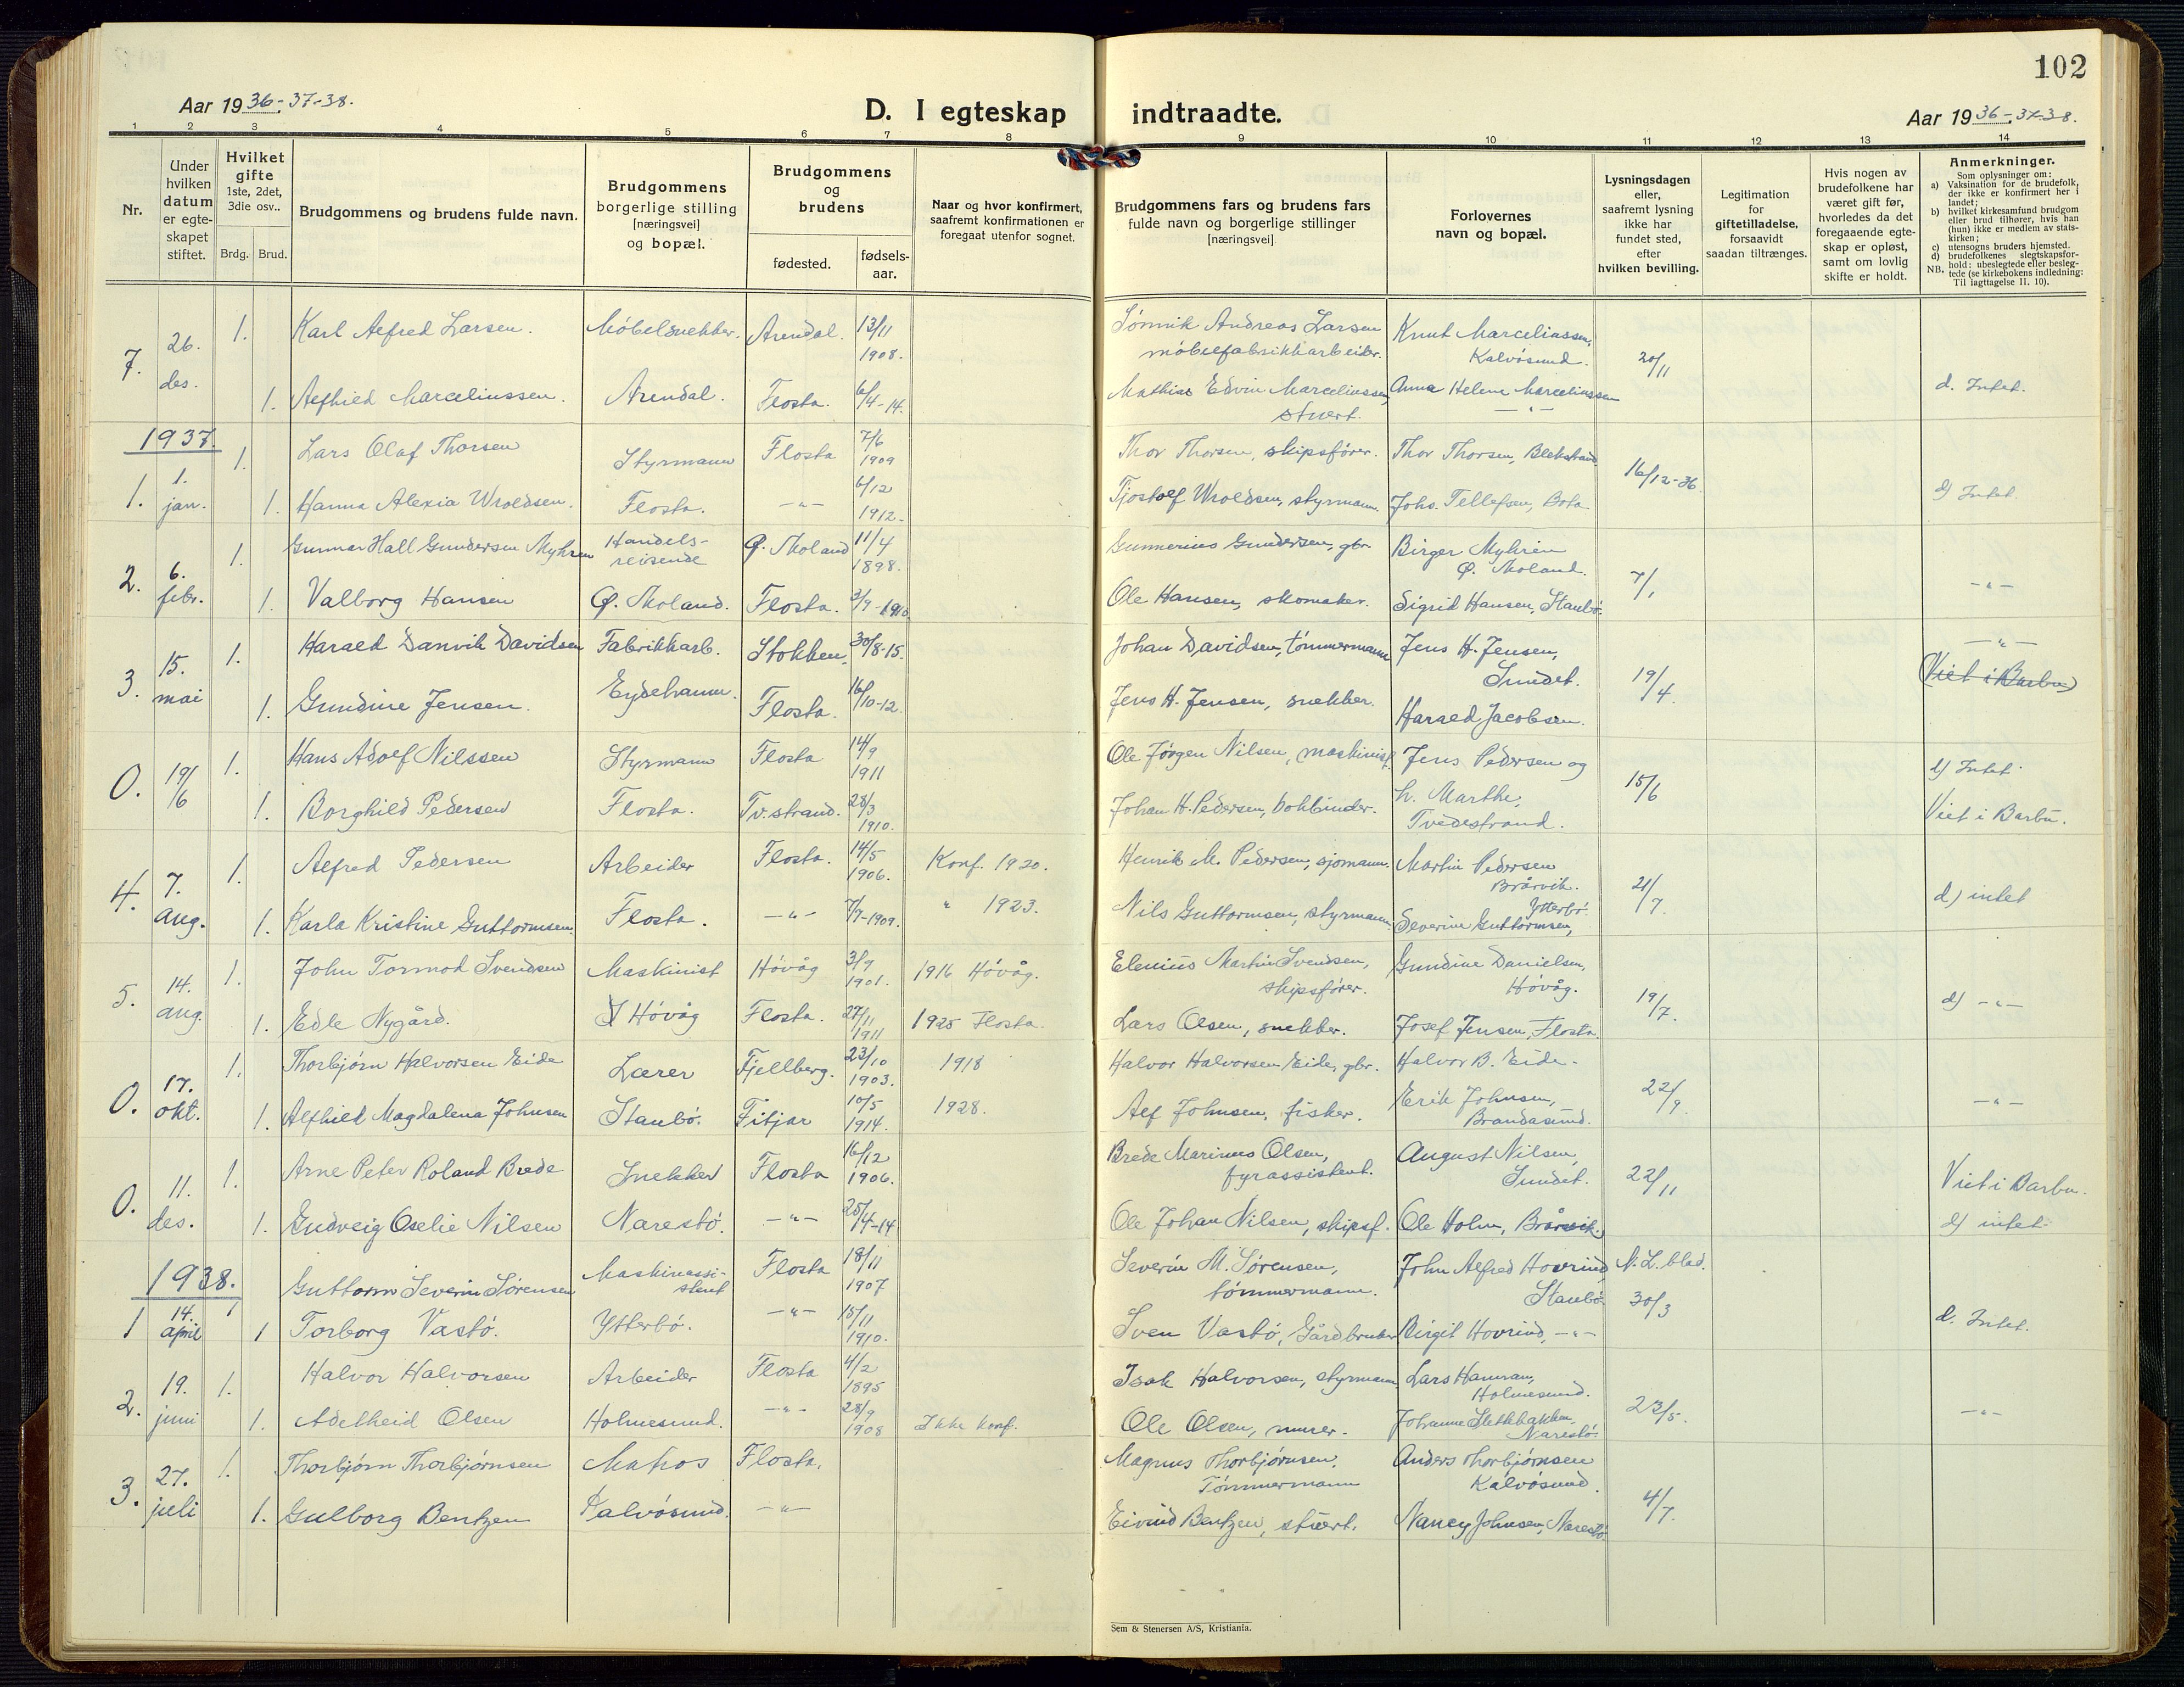 102
Aar 1936-37-38.
D. I egteskap indtraadte.
Aar 1936-37-38.
1 2 3 4 5 6 7 8 9 10 11 12 13 14
Nr.
Under hvilken datum er egte-skapet stiftet.
Hvilket gifte 1ste, 2det, 3die osv..
Brdg. Brud.
Brudgommens og brudens fulde navn.
Brudgommens borgerlige stilling [næringsvei] og bopæl.
Brudgommens og brudens
fødested. fødsels-aar.
Naar og hvor konfirmert, saafremt konfirmationen er foregaat utenfor sognet.
Brudgommens fars og brudens fars fulde navn og borgerlige stillinger [næringsvei]
Forlovernes navn og bopæl.
Lysningsdagen eller, saafremt lysning ikke har fundet sted, efter hvilken bevilling.
Legitimation for giftetilladelse, forsaavidt saadan tiltrænges.
Hvis nogen av brudefolkene har været gift før, hvorledes da det foregaaende egte-skap er opløst, samt om lovlig skifte er holdt.
Anmerkninger.
Som oplysninger om:
a) Vaksination for de brudefolk, der ikke er konfirmert her i landet;
b) hvilket kirkesamfund brudgom eller brud tilhører, hvis han (hun) ikke er medlem av stats-kirken;
c) utensogns bruders hjemsted.
d) brudefolkenes slegtskapsfor-hold: ubeslegtede eller besleg-tede (se kirkebokens indledning: Til iagttagelse II. 10).
NB.
7. 26. des. 1. Karl Alfred Larsen. Möbelsnekker. Arendal. 13/11 1908. Sönnik Andreas Larsen möbelfabrikkarbeider. Knut Marceliussen, Kalvösund. 20/11
1. Alfhild Marceliussen. Arendal. Flosta. 6/4-14. Mathias Edvin Marceliussen, stuert. Anna Helene Marceliussen -"- d. Intet.
1937.
1. 1. jan. 1. Lars Olaf Thorsen Styrmann Flosta 7/6 1909 Thor Thorsen, skipsfører. Thor Thorsen, Blekstrand 16/12-36.
1. Hanna Alexia Wroldsen. Flosta. -"- 6/12 1912. Tjostolf Wroldsen, styrmann. Johs. Tellefsen, Bota d) Intet.
2. 6. febr. 1. Gunnar Hall Gundersen Myhren Handels-reisende Ø. Moland 11/4 1898. Gunnerius Gundersen, gbr. Birger Myhren Ø. Moland. 7/1
1. Valborg Hansen Ø. Moland. Flosta. 3/9-1910. Ole Hansen, skomaker. Sigrid Hansen, Staubö. -"-
3. 15. mai 1. Harald Danvik Davidsen Fabrikkarb. Stokken. 30/8-15. Johan Davidsen, tömmermann Jens H. Jensen, Sundet. 19/4. -"-
1. Gundine Jensen. Eydehavn. Flosta. 16/10-12. Jens H. Jensen, snekker. Harald Jacobsen. (Viet i Barbu)
0. 19/6 1. Hans Adolf Nilssen Styrmann Flosta 14/9 1911 Ole Jörgen Nilsen, maskinist. Jens Pedersen og 15/6 d) Intet.
1. Borghild Pedersen Flosta. Tv.strand. 28/3 1910. Johan H. Pedersen, bokbinder. h. Marthe, Tvedestrand. Viet i Barbu.
4. 7. aug. 1. Alfred Pedersen Arbeider Flosta. 14/5 1906. Konf. 1920. Henrik M. Pedersen, sjömann. Martin Pedersen Brårvik. 21/7.
1. Karla Kristine Guttormsen. Flosta. -"- 7/7-1909. " 1923. Nils Guttormsen, styrmann. Severin Guttormsen, Ytterbö. d) intet
5. 14. aug. 1. John Tormod Svendsen Maskinist Hövåg 3/9 1901. 1916 Hövåg. Elenius Martin Svendsen, skipsförer. Gundine Danielsen, Hövåg. 19/7.
1. Edle Nygård. Hövåg Flosta. 27/11 1911 1925 Flosta. Lars Olsen, snekker. Josef Jensen, Flosta. d) -"-
0. 17. okt. 1. Thorbjörn Halvorsen Eide Lærer Fjellberg. 23/10 1903. 1918 Halvor Halvorsen Eide, gbr. Halvor B. Eide. 22/9
1. Alfhild Magdalena Johnsen Staubö. Fitjar 10/5 1914. 1928. Alf Johnsen, fisker. Erik Johnsen, Brandasund. -"-
0. 11. des. 1. Arne Peter Roland Brede Snekker Flosta 16/12 1906. Brede Marinus Olsen, fyrassistent. August Nilsen, Sundet. 22/11 Viet i Barbu.
1. Gudveig Oselie Nilsen Narestö. -"- 25/4-14 Ole Johan Nilsen, skipsf. Ole Holm, Brårvik. d) intet.
1938.
1 14. april 1 Guttorm Severin Sörensen Maskinassi-stent Flosta 18/11 1907 Severin M. Sörensen, tömmermann. John Alfred Hovrind, Staubö. N. L. blad. 30/3
1 Torborg Vastö. Ytterbö. -"- 15/11 1910. Sven Vastö, Gårdbruker Birgit Hovrind, -"- d. Intet.
2. 19. juni 1. Halvor Halvorsen Arbeider Flosta 4/2 1895 Isak Halvorsen, styrmann Lars Hamran, Holmesund. 23/5.
1. Adelheid Olsen Holmesund. -"- 28/9 1908 Ikke konf. Ole Olsen, murer. Johanne Slethbakken, Narestö. -"-
3. 27. juli 1. Thorbjörn Thorbjörnsen Matros Flosta. Magnus Thorbjörnsen, Tömmermann Anders Thorbjörnsen Kalvösund. 4/7.
1. Gulborg Bentzen Kalvösund. -"- Eivind Bentzen, stuert. Nancy Johnsen, Narestö.
Sem & Stenersen A/S, Kristiania.